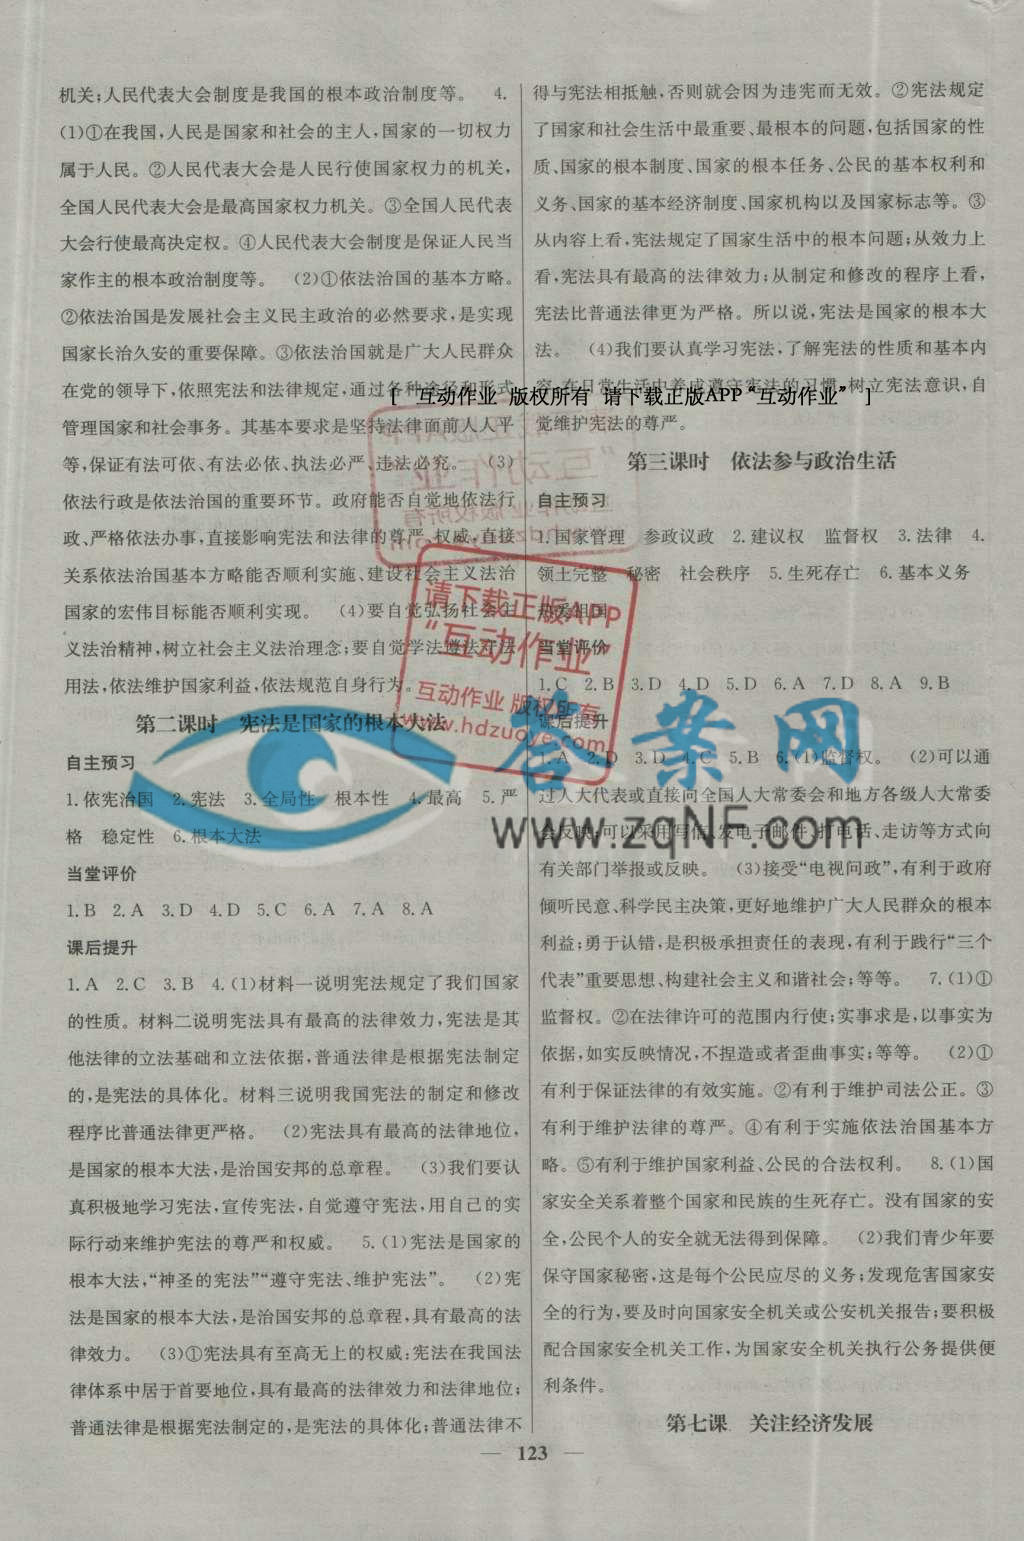 机关;人民代表大会制度是我国的根本政治制度等。 4.
(1)①在我国,人民是国家和社会的主人,国家的一切权力
属于人民。②人民代表大会是人民行使国家权力的机关,
全国人民代表大会是最高国家权力机关。③全国人民代表
大会行使最高决定权。④人民代表大会制度是保证人民当
家作主的根本政治制度等。 (2)①依法治国的基本方略。
②依法治国是发展社会主义民主政治的必然要求,是实现
国家长治久安的重要保障。③依法治国就是广大人民群众
在党的领导下,依照宪法和法律规定,通过各种途径和形式
管理国家和社会事务。其基本要求是坚持法律面前人人平
等,保证有法可依、有法必依、执法必严、违法必究。 (3)
依法行政是依法治国的重要环节。政府能否自觉地依法行
政、严格依法办事,直接影响宪法和法律的尊严、权威,直接
关系依法治国基本方略能否顺利实施、建设社会主义法治
国家的宏伟目标能否顺利实现。 (4)要自觉弘扬社会主
义法治精神,树立社会主义法治理念;要自觉学法遵法守法
用法,依法维护国家利益,依法规范自身行为。
第二课时 宪法是国家的根本大法
自主预习
1.依宪治国 2.宪法 3.全局性 根本性 4.最高 5.严
格 稳定性 6.根本大法
当堂评价
1.B 2.A 3.D 4.D 5.C 6.A 7.A 8.A
课后提升
1.A 2.C 3.B 4.(1)材料一说明宪法规定了我们国家
的性质。材料二说明宪法具有最高的法律效力,宪法是其
他法律的立法基础和立法依据,普通法律是根据宪法制定
的,是宪法的具体化。材料三说明我国宪法的制定和修改
程序比普通法律更严格。 (2)宪法具有最高的法律地位,
是国家的根本大法,是治国安邦的总章程。 (3)我们要认
真积极地学习宪法,宣传宪法,自觉遵守宪法,用自己的实
际行动来维护宪法的尊严和权威。 5.(1)宪法是国家的
根本大法,“神圣的宪法”“遵守宪法、维护宪法”。 (2)宪
法是国家的根本大法,是治国安邦的总章程,具有最高的法
律效力。 (3)①宪法具有至高无上的权威:宪法在我国法
律体系中居于首要地位,具有最高的法律效力和法律地位;
普通法律是根据宪法制定的,是宪法的具体化;普通法律不
得与宪法相抵触,否则就会因为违宪而无效。②宪法规定
了国家和社会生活中最重要、最根本的问题,包括国家的性
质、国家的根本制度、国家的根本任务、公民的基本权利和
义务、国家的基本经济制度、国家机构以及国家标志等。③
从内容上看,宪法规定了国家生活中的根本问题;从效力上
看,宪法具有最高的法律效力;从制定和修改的程序上看,
宪法比普通法律更为严格。所以说,宪法是国家的根本大
法。 (4)我们要认真学习宪法,了解宪法的性质和基本内
容,在日常生活中养成遵守宪法的习惯,树立宪法意识,自
[ 互动作业 版权所有 请下载正版APP “互动作业” ]
觉维护宪法的尊严。
第三课时 依法参与政治生活
自主预习
1.国家管理 参政议政 2.建议权 监督权 3.法律 4.
领土完整 秘密 社会秩序 5.生死存亡 6.基本义务
热爱祖国
当堂评价
1.C 2.B 3.D 4.D 5.D 6.A 7.D 8.A 9.B
课后提升
1.A 2.D 3.D 4.C 5.B 6.(1)监督权。 (2)可以通
过人大代表或直接向全国人大常委会和地方各级人大常委
会反映;可以采用写信、发电子邮件、打电话、走访等方式向
有关部门举报或反映。 (3)接受“电视问政”,有利于政府
倾听民意、科学民主决策,更好地维护广大人民群众的根本
利益;勇于认错,是积极承担责任的表现,有利于践行“三个
代表”重要思想、构建社会主义和谐社会;等等。 7.(1)①
监督权。②在法律许可的范围内行使;实事求是,以事实为
依据,如实反映情况,不捏造或者歪曲事实;等等。 (2)①
有利于保证法律的有效实施。②有利于维护司法公正。③
有利于维护法律的尊严。④有利于实施依法治国基本方
略。⑤有利于维护国家利益、公民的合法权利。 8.(1)国
家安全关系着整个国家和民族的生死存亡。没有国家的安
全,公民个人的安全就无法得到保障。 (2)我们青少年要
保守国家秘密,这是每个公民应尽的义务;发现危害国家安
全的行为,要及时向国家安全机关或公安机关报告;要积极
配合国家安全机关工作,为国家安全机关执行公务提供便
利条件。
第七课 关注经济发展
— 123 —
请下载正版APP
“互动作业”
互动作业 版权所有
www.hdzuoye.com
答案网
www.zqNF.com